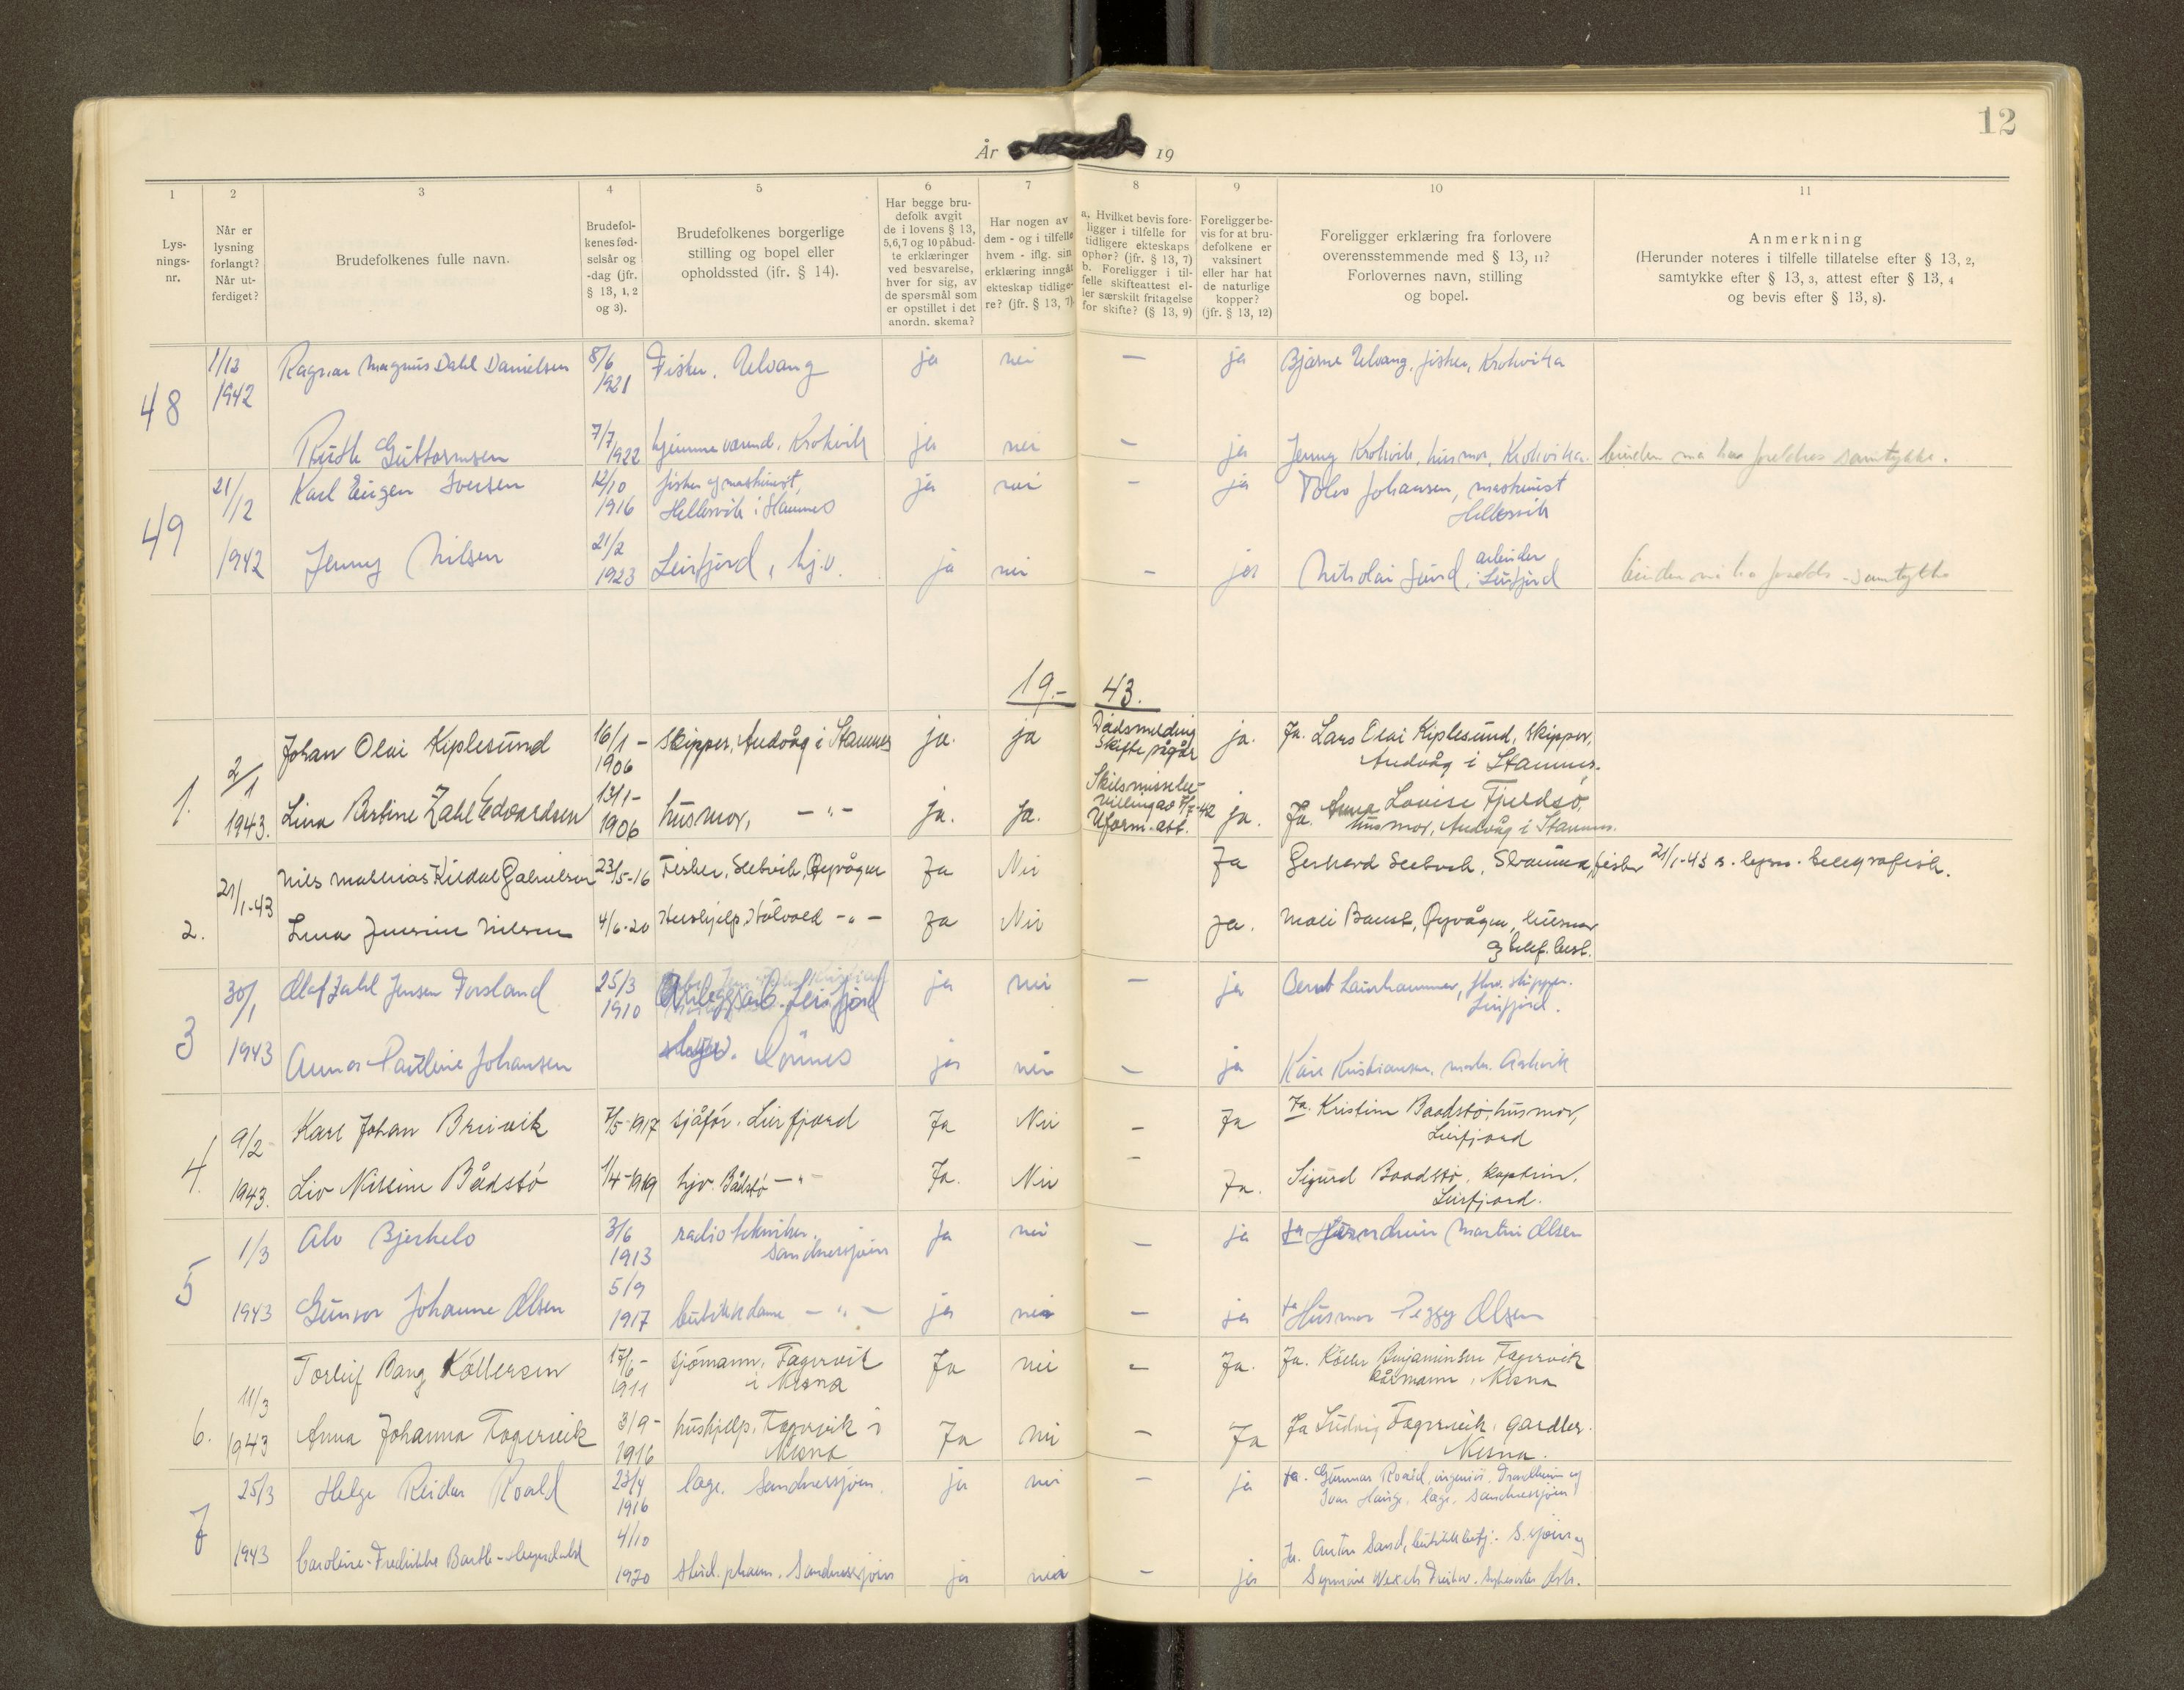 12
År 19
1 2 3 4 5 6 7 8 9 10 11
Lys-
nings-
nr.
Når er
lysning
forlangt?
Når ut-
ferdiget?
Brudefolkenes fulle navn.
Brudefol-
kenes fød-
selsår og
-dag (jfr.
§ 13, 1, 2
og 3).
Brudefolkenes borgerlige
stilling og bopel eller
opholdssted (ifr. § 14).
Har begge bru-
defolk avgit
de i lovens § 13,
5,6,7 og 10 påbud-
te erklæringer
ved besvarelse,
hver for sig, av
de spørsmål som
er opstillet i det
anordn. skema?
Har nogen av
dem - og i tilfelle
hvem - iflg. sin
erklæring inngåt
ekteskap tidlige-
re? (jfr. § 13, 7)
a. Hvilket bevis fore-
ligger i tilfelle for
tidligere ekteskaps
ophør? (jfr. § 13, 7)
b. Foreligger i til-
felle skifteattest el-
ler særskilt fritagelse
for skifte? (§ 13, 9)
Foreligger be-
vis for at bru-
defolkene er
vaksinert
eller har hat
de naturlige
kopper?
(jfr. § 13, 12)
Foreligger erklæring fra forlovere
overensstemmende med § 13, 11?
Forlovernes navn, stilling
og bopel.
Anmerkning
(Herunder noteres i tilfelle tillatelse efter § 13, 2,
samtykke efter § 13, 3, attest efter § 13, 4
og bevis efter § 13, 8).
48 1/12 1942 Ragnar Magnus Dahl Danielsen 8/6 1921 Fisker, Ulvang ja nei — ja Bjarne Ulvang, fisker, Krokvika
Ruth Guttormsen 7/7 1922 hjemmeværende, Krokvik ja nei — ja Jenny Krokvik, husmor, Krokvika. bruden må ha foreldres samtykke.
49 21/12 1942 Karl Eugen Iversen 12/10 1916 fisker og maskinist, Hellesvik i Stamnes ja nei — ja Johansen, maskinist Hellesvik
Jenny Nilsen 21/2 1923 Leirfjord, hj.v. ja nei — ja Nikolai Sund, arbeider, Leirfjord bruden må ha foreldres samtykke
19.- 43.
1. 2/1 1943. Johan Olai Kiplesund 16/1- 1906 Skipper, Andvåg i Stamnes ja. ja Dødsmelding Skifte pågår ja. Ja. Lars Olai Kiplesund, Skipper, Andvåg i Stamnes.
Lina Bertine Zahl Edvardsen 13/1- 1906 husmor, -"- ja. Ja. Skilsmissebe- villing av 7/7-42 Uform. att. ja. Ja. Anna Lovise Fjeldsø, husmor, Andvåg i Stamnes.
2. 21/1-43 Nils Mathias Kildal Gabrielsen 23/5-16 Fisker, Seetvik, Øyvågen Ja Nei Ja Gerhard Seetvik, fisker 21/1-43 telegrafisk.
Lina Jensine Nilsen 4/6-20 Hushjelp, -"- Ja Nei Ja. Øyvågen, husmor
3 30/1 1943 Olaf Zahl Jensen Forsland 25/3 1910 Anleggsarb. Leirfjord ja nei — ja Leirfjord.
Anna Pauline Johansen Dønnes ja nei — ja Kåre Kristiansen,
4. 9/2 1943. Karl Johan Breivik 7/5-1917 sjåfør. Leirfjord Ja Nei — Ja Ja. Kristine Baadstø, husmor, Leirfjord
Liv Nilsine Bådstø 1/4-1919 hjv. Bådstø -"- Ja. Nei — Ja. Sigurd Baadstø, kaptein, Leirfjord.
5 1/3 1943 Alv Bjerkelo 3/6 1913 radiotekniker Sandnessjøen Ja nei — ja ja Martin Olsen
Gunvor Johanne Olsen 5/9 1917 butikkdame -"- ja nei — ja ja Husmor Peggy Olsen
6. 11/3 1943 Torleif Bang Køllersen 17/6- 1911 sjømann, Fagervik i Nesna Ja nei — Ja. Ja. Køller Benjaminsen Fagervik kårmann, Nesna
Anna Johanna Fagervik 3/9- 1916 hushjelp, Fagervik i Nesna Ja nei — Ja Ja Ludvig Fagervik, gardbr. Nesna.
7 25/3 1943 Helge Reidar Roald 23/4 1916 læge. Sandnessjøen. ja nei — ja ja. Gunnar Roald, ingeniør, Trondheim og Ivar Hauge, læge, Sandnessjøen
Caroline-Fredrikke Barth-Heyerdahl 4/10 1920 stud. pharm. Sandnessjøen ja nei — ja Ja. Anton Sand, S.sjøen og